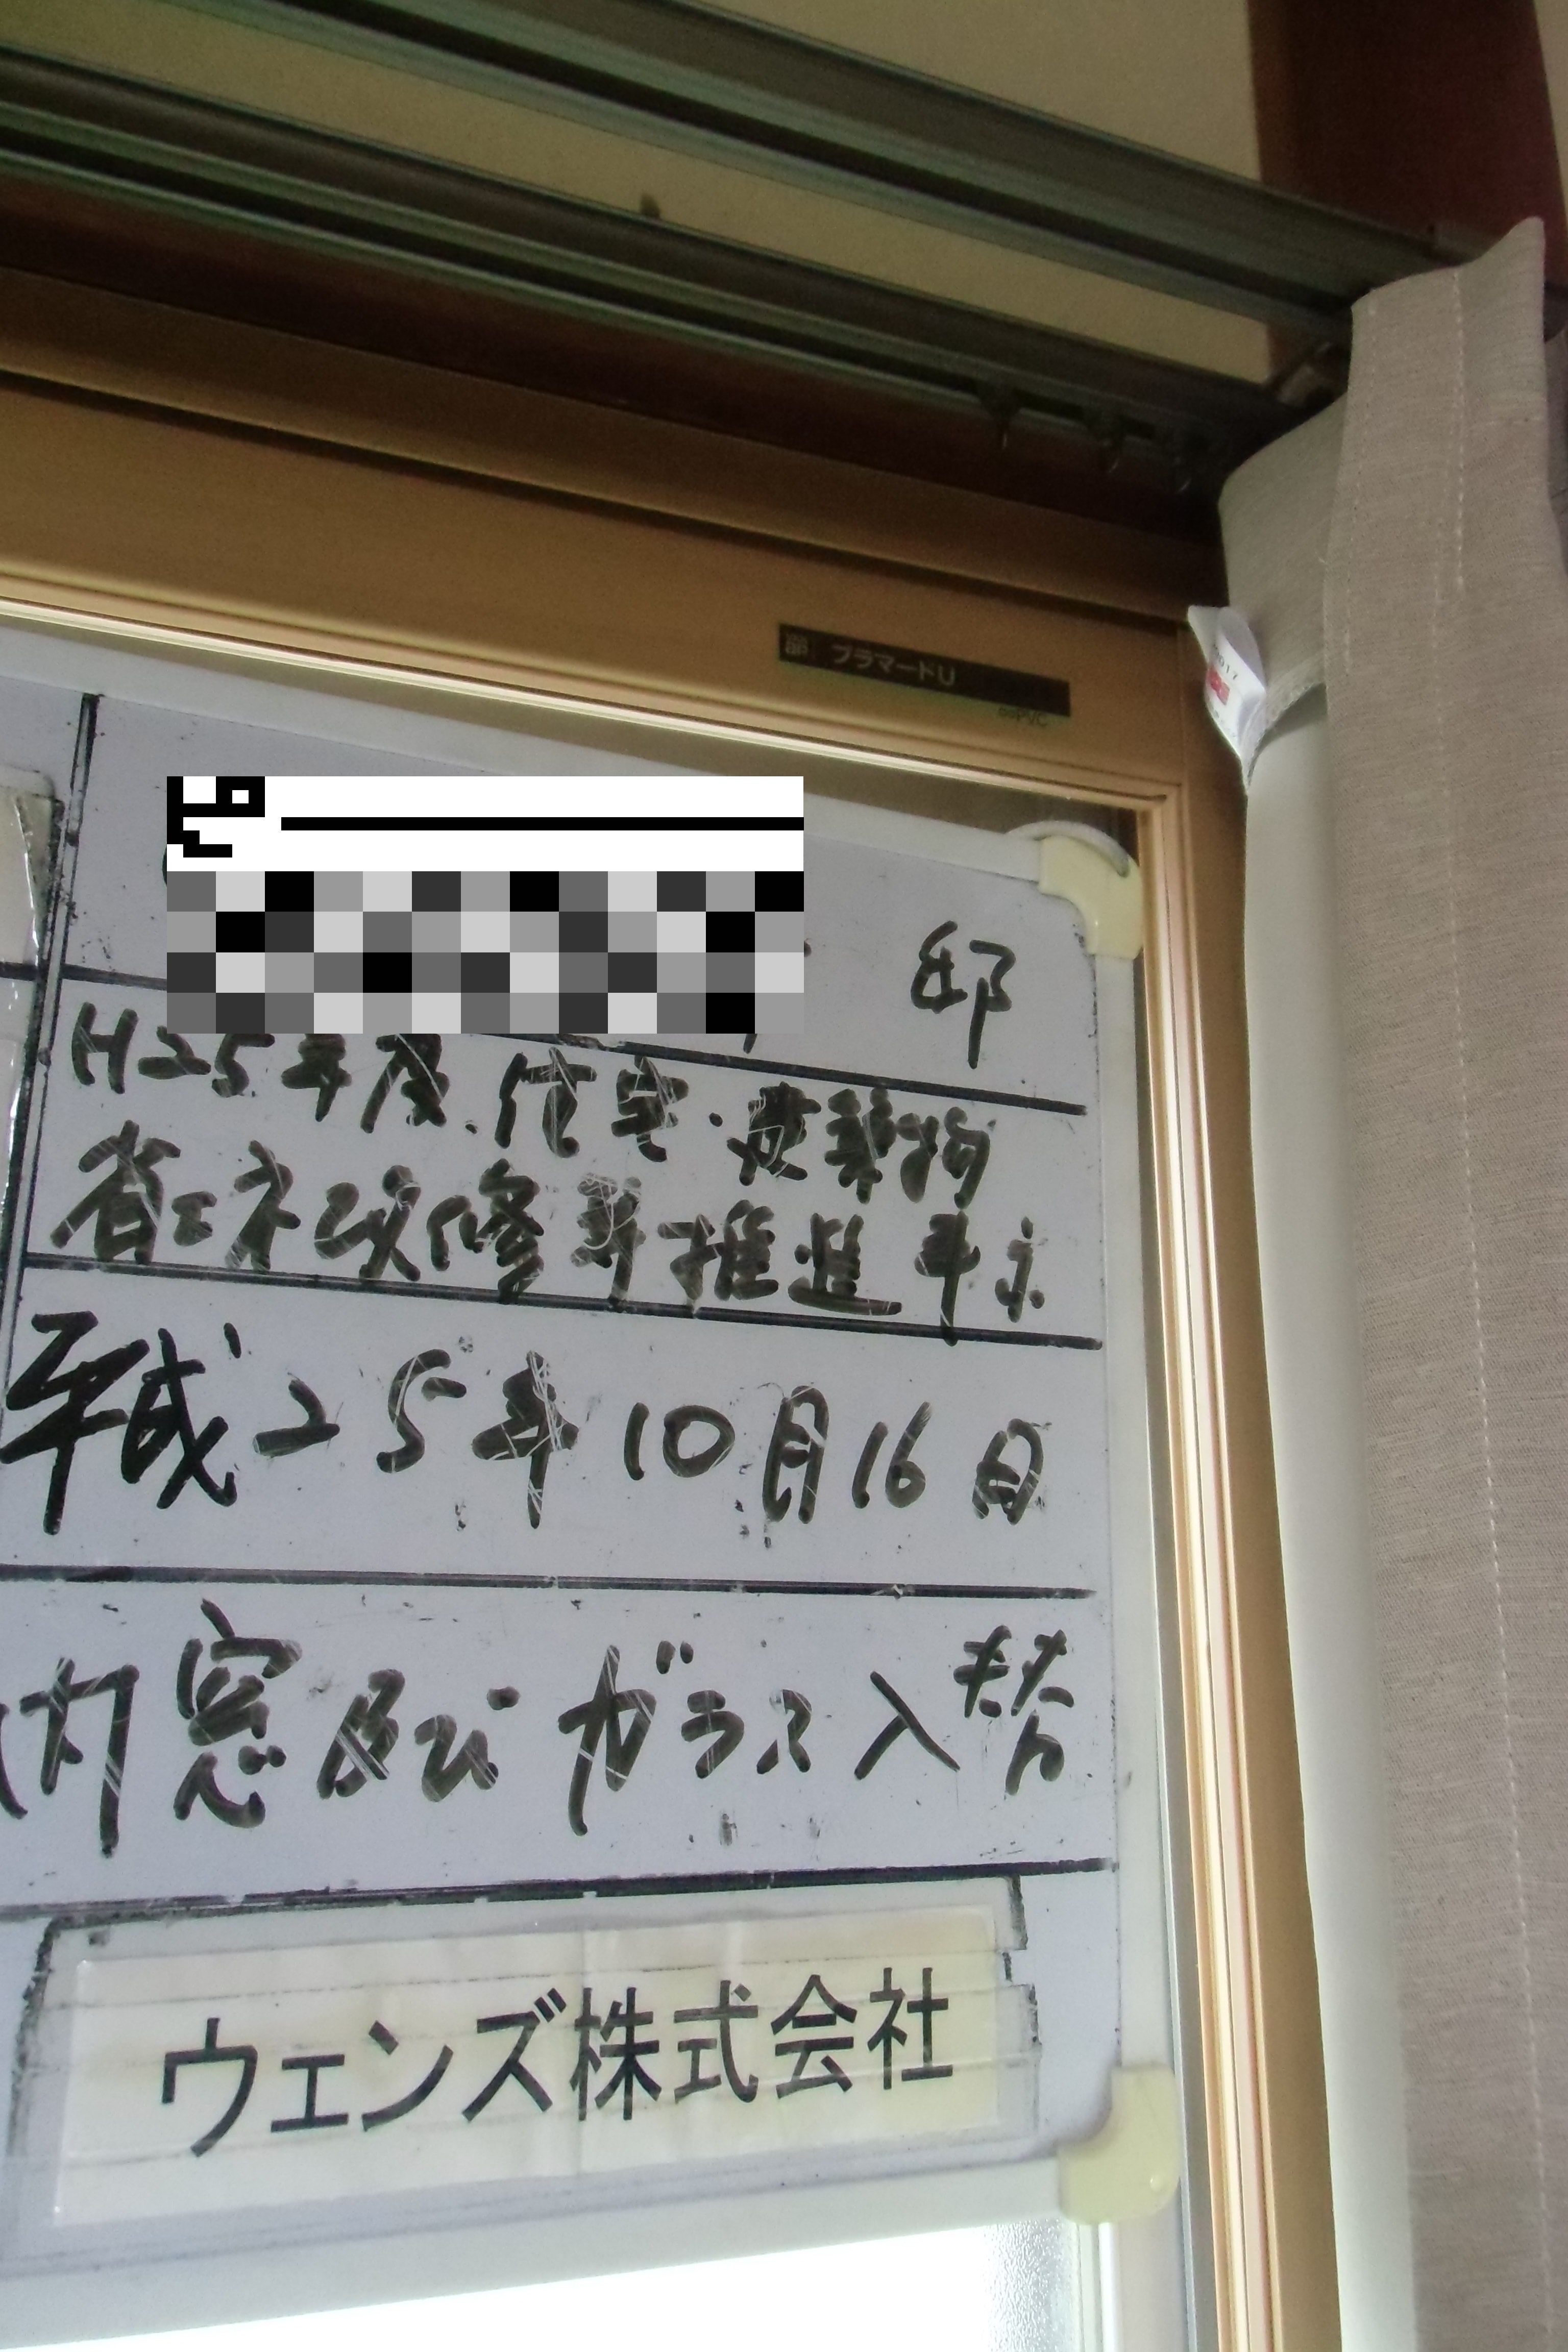 プラマードU
邸
H25年度.住宅・建築物
省エネ改修等推進事業
平成25年10月16日
内窓及びガラス入替
ウェンズ株式会社